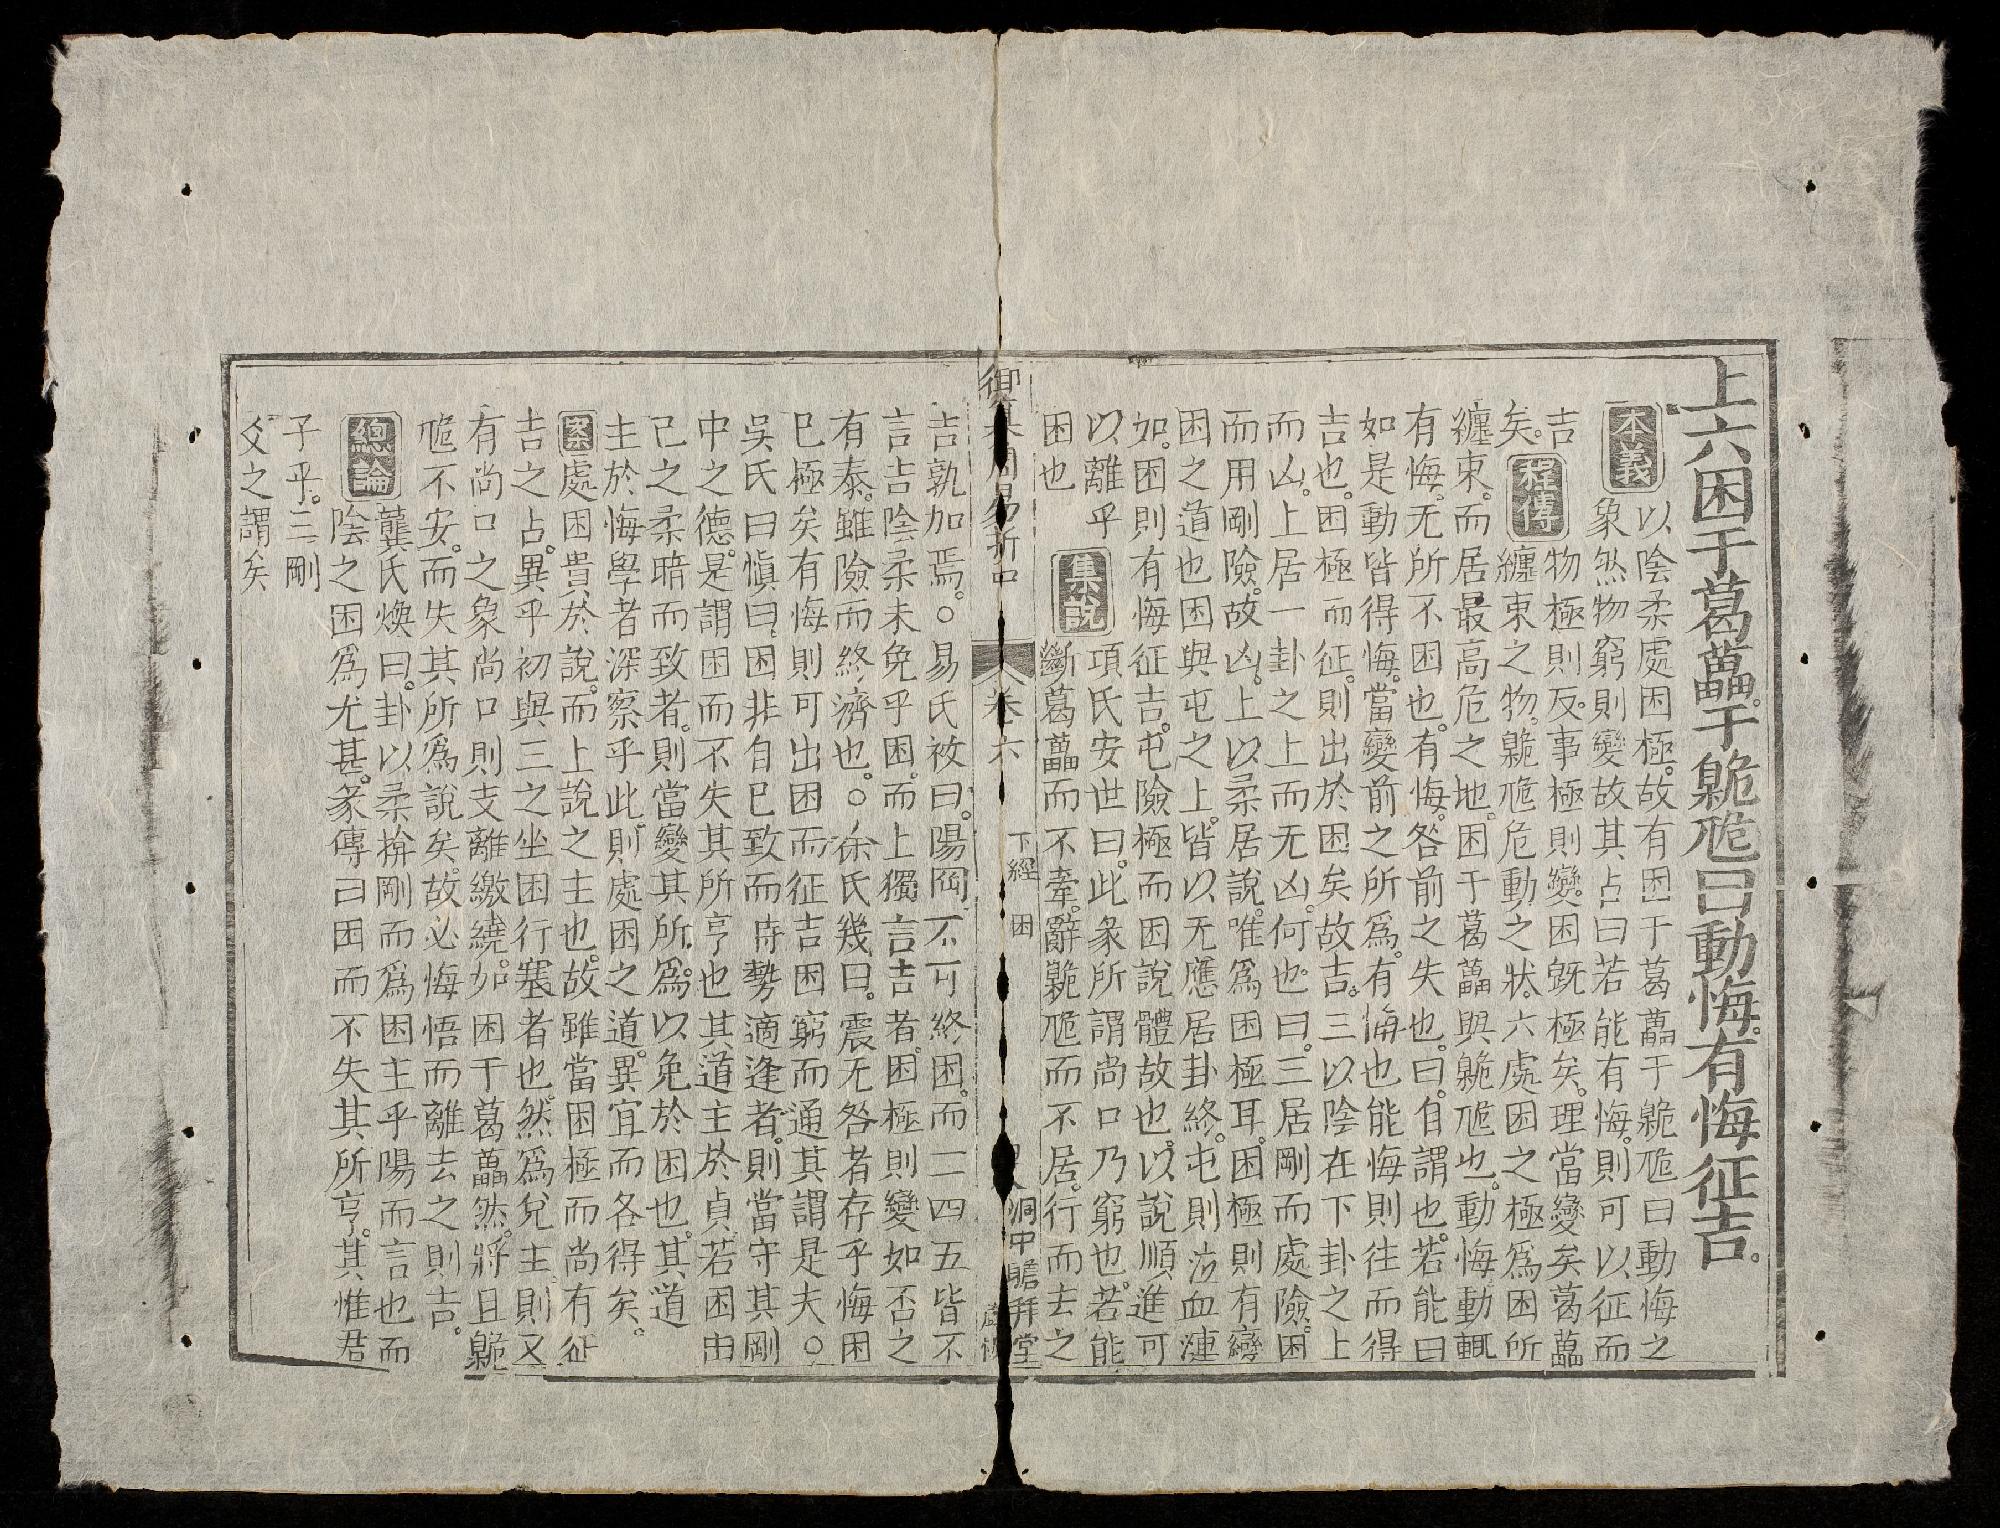 上六困于葛藟于臲卼曰動悔有悔征吉。
本義
以陰柔處困極。故有困于葛藟于臲卼曰動悔之
象。然物窮則變。故其占曰若能有悔。則可以征而
吉
矣。
程傳
物極則反。事極則變。困旣極矣。理當變矣。葛藟
纏束之物。臲卼危動之狀。六處困之極。爲困所
纏束。而居最高危之地。困于葛藟與臲卼也。動悔動輒
有悔。无所不困也。有悔。咎前之失也。曰。自謂也。若能曰
如是動皆得悔。當變前之所爲。有悔也。能悔則往而得
吉也。困極而征。則出於困矣。故吉。三以陰在下卦之上
而凶。上居一卦之上而无凶。何也。曰。三居剛而處險。困
而用剛險。故凶。上以柔居說。唯爲困極耳。困極則有變
困之道也。困與屯之上。皆以无應居卦終。屯則泣血漣
如。困則有悔征吉。屯險極而困說體故也。以說順進可
以離乎
困也
集說
項氏安世曰。此彖所謂尚口乃窮也。若能
斷葛藟而不牽。辭臲卼而不居。行而去之
周易折中
卷六
下經 困
吉孰加焉。○易氏祓曰。陽剛不可終困。而二四五皆不
言吉。陰柔未免乎困。而上獨言吉者。困極則變。如否之
有泰。雖險而終濟也。○徐氏幾曰。震无咎者存乎悔。困
已極矣。有悔則可出困而征吉。困窮而通。其謂是夫。○
吳氏曰慎曰。困非自己致而時勢適逢者。則當守其剛
中之德。是謂困而不失其所亨也。其道主於貞。若困由
己之柔暗而致者。則當變其所爲。以免於困也。其道
主於悔。學者深察乎此。則處困之道。異宜而各得矣。
案處困貴於說。而上說之主也。故雖當困極而尚有征
吉之占。異乎初與三之坐困行蹇者也。然爲兌主。則又
有尚口之象。尚口則支離繳繞。如困于葛藟然。將且臲
卼不安。而失其所爲說矣。故必悔悟而離去之則吉。
總論
龔氏煥曰。卦以柔揜剛而爲困主乎陽而言也而
陰之困爲尤甚。彖傳曰困而不失其所亨。其惟君
子乎。三剛
爻之謂矣